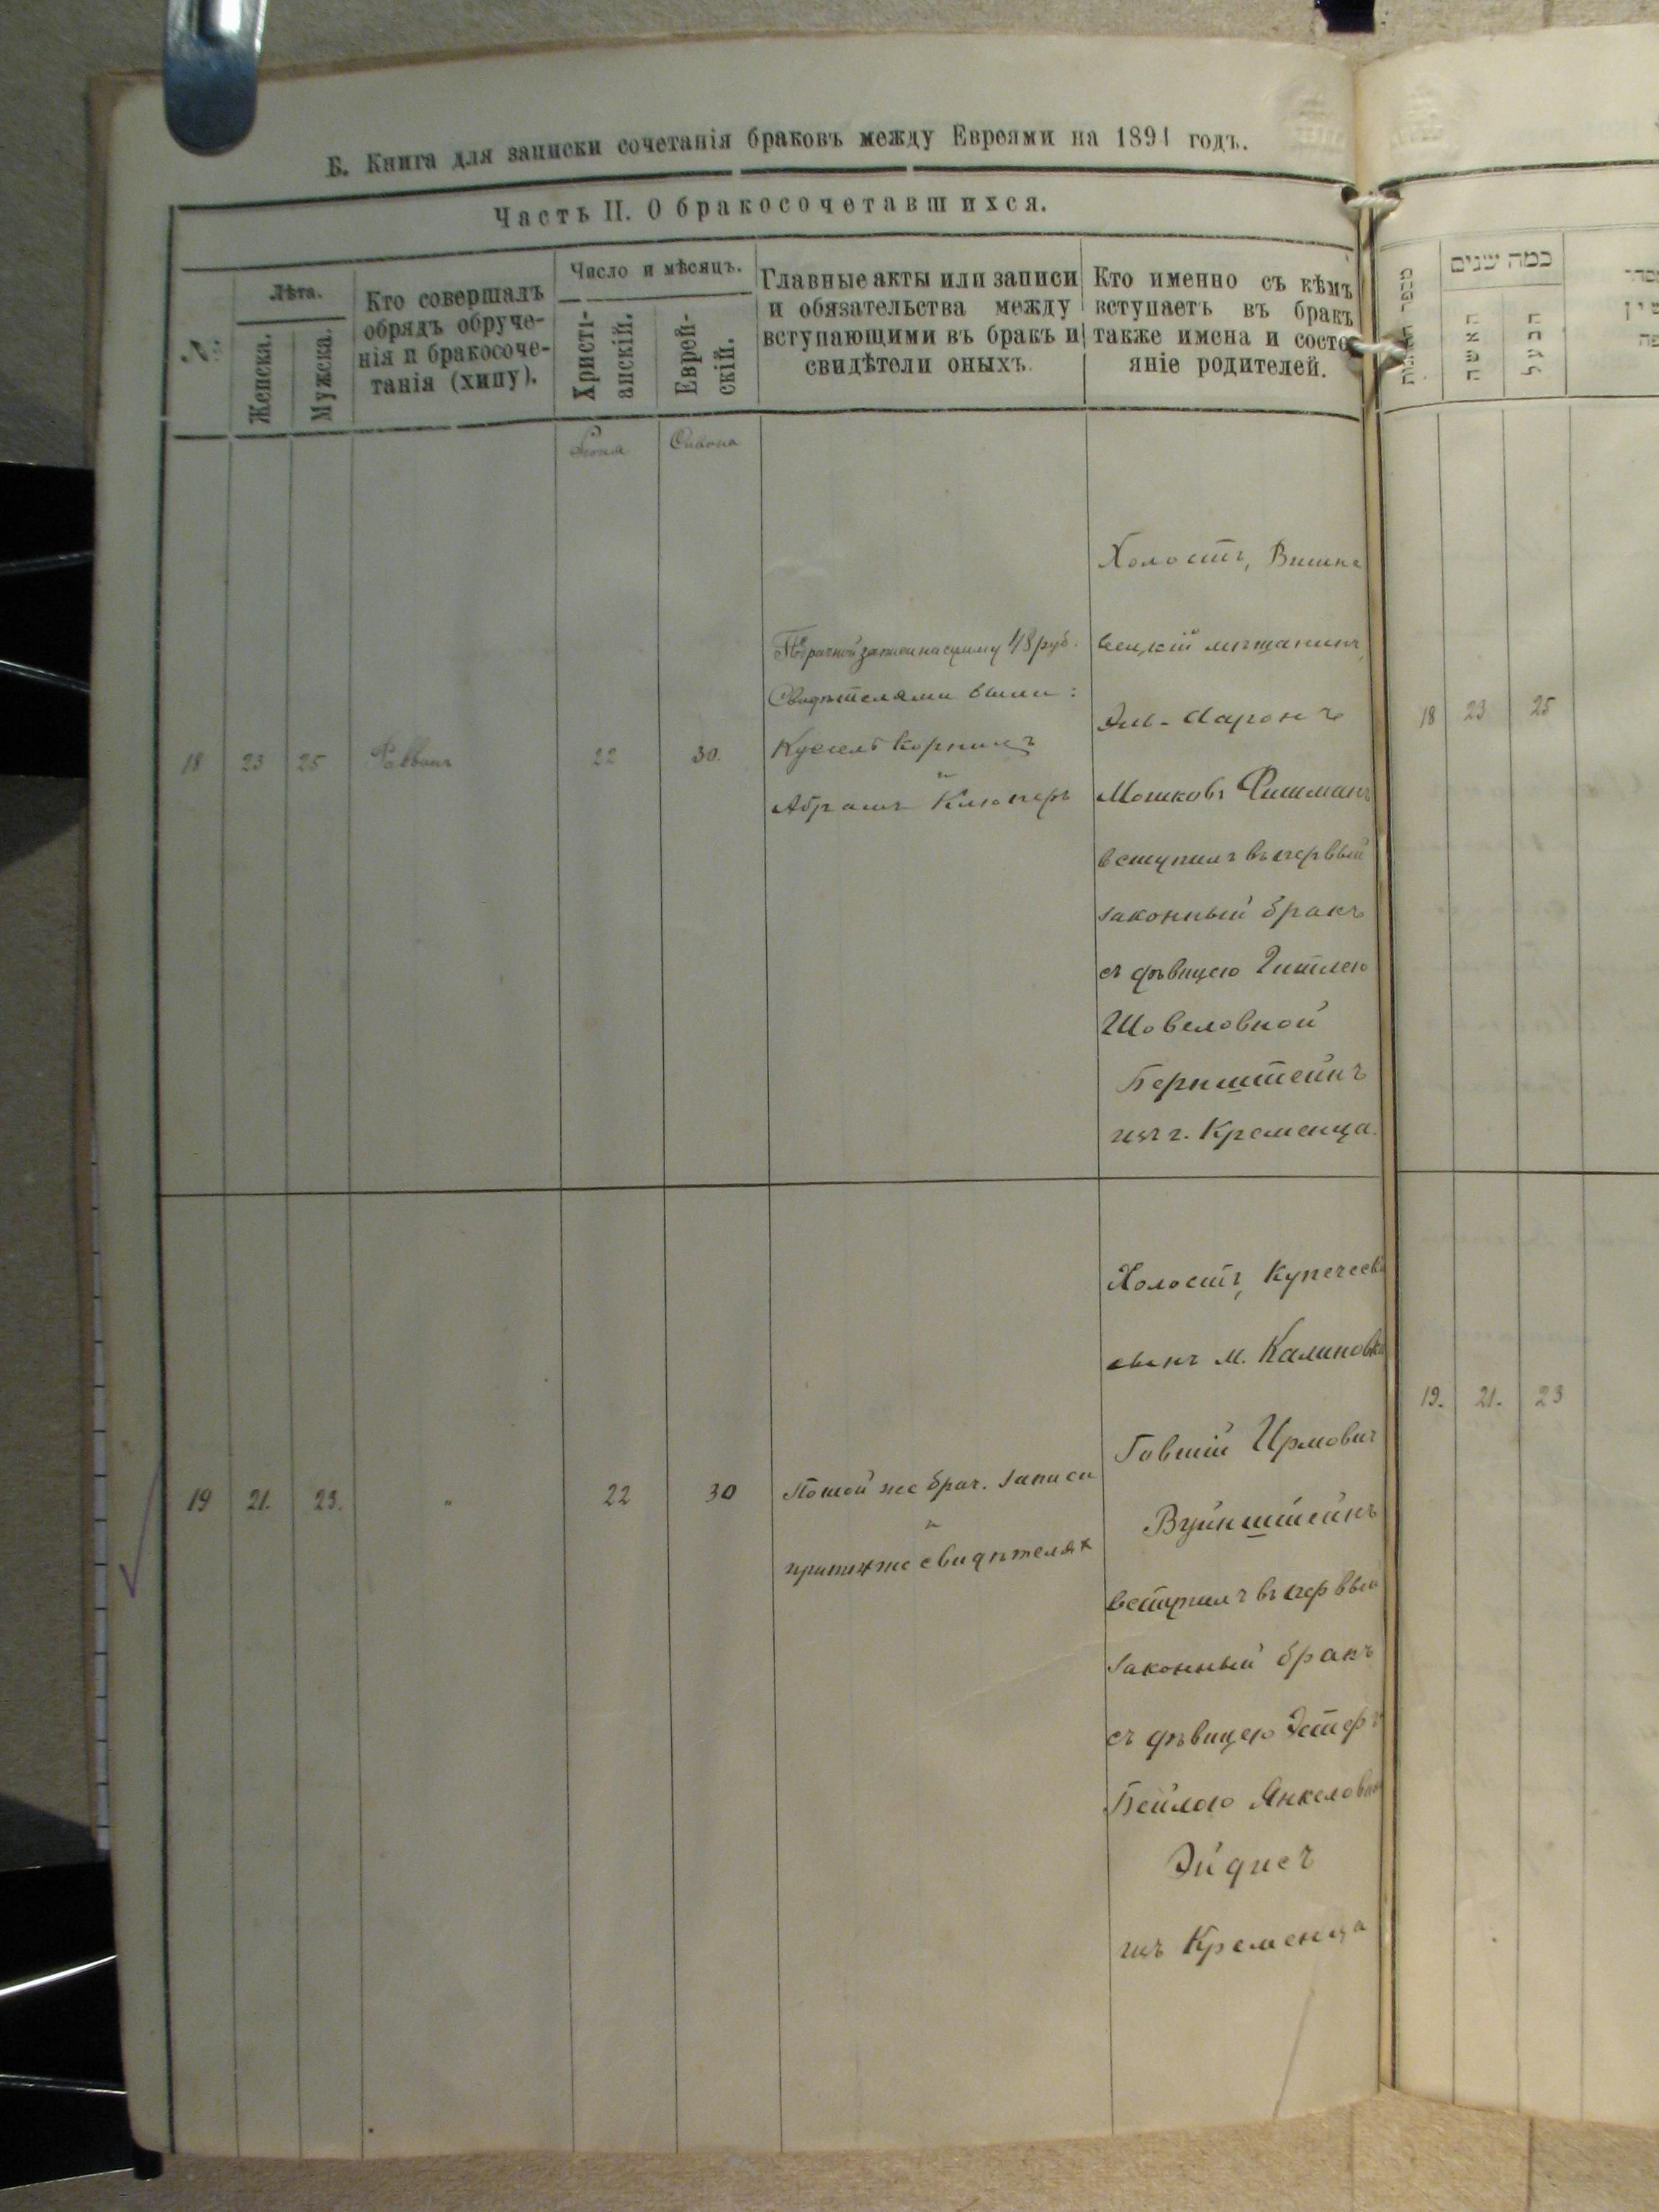 Б. Книга для записки сочетанія браковъ между Евреями на 1891 годъ.
Часть II. О бракосочетавшихся.
№
Лѣта.
Женска.
Мужска.
Кто совершалъ
обрядъ обруче-
нія и бракосоче-
танія (хипу).
Число и мѣсяцъ.
Христі-
анскій.
Еврей-
скій.
Главные акты или записи
и обязательства между
вступающими въ бракъ и
свидѣтели оныхъ.
Кто именно съ кѣмъ
вступаетъ въ бракъ
также имена и состо
яніе родителей.
כמה שנים
האשה
Іюня
Сивона
18 23 25 Раввинъ 22 30.
По брачной записи на сумму 48 руб.
Свидѣтелями были:
и
Абрамъ Клюгеръ
Холостъ, Вишне
вецкій мѣщанинъ,
Эль-Ааронъ
Мошковъ Фишманъ
вступилъ въ первый
законный бракъ
съ дѣвицею Гитлею
Шовеловной
Бернштейнъ
изъ г. Кременца.
18 23 25
19 21. 23. " 22 30
По той же брач. записи
и
при тѣхъ же свидѣтелях
Холостъ, Купеческ
сынъ м. Калиновк
Говшій Ирмович
Вуйнштейнъ
вступилъ въ первый
законный бракъ
съ дѣвицею Эстеръ
Бейлою Янкеловн
Эйдисъ
изъ Кременца
19. 21. 23